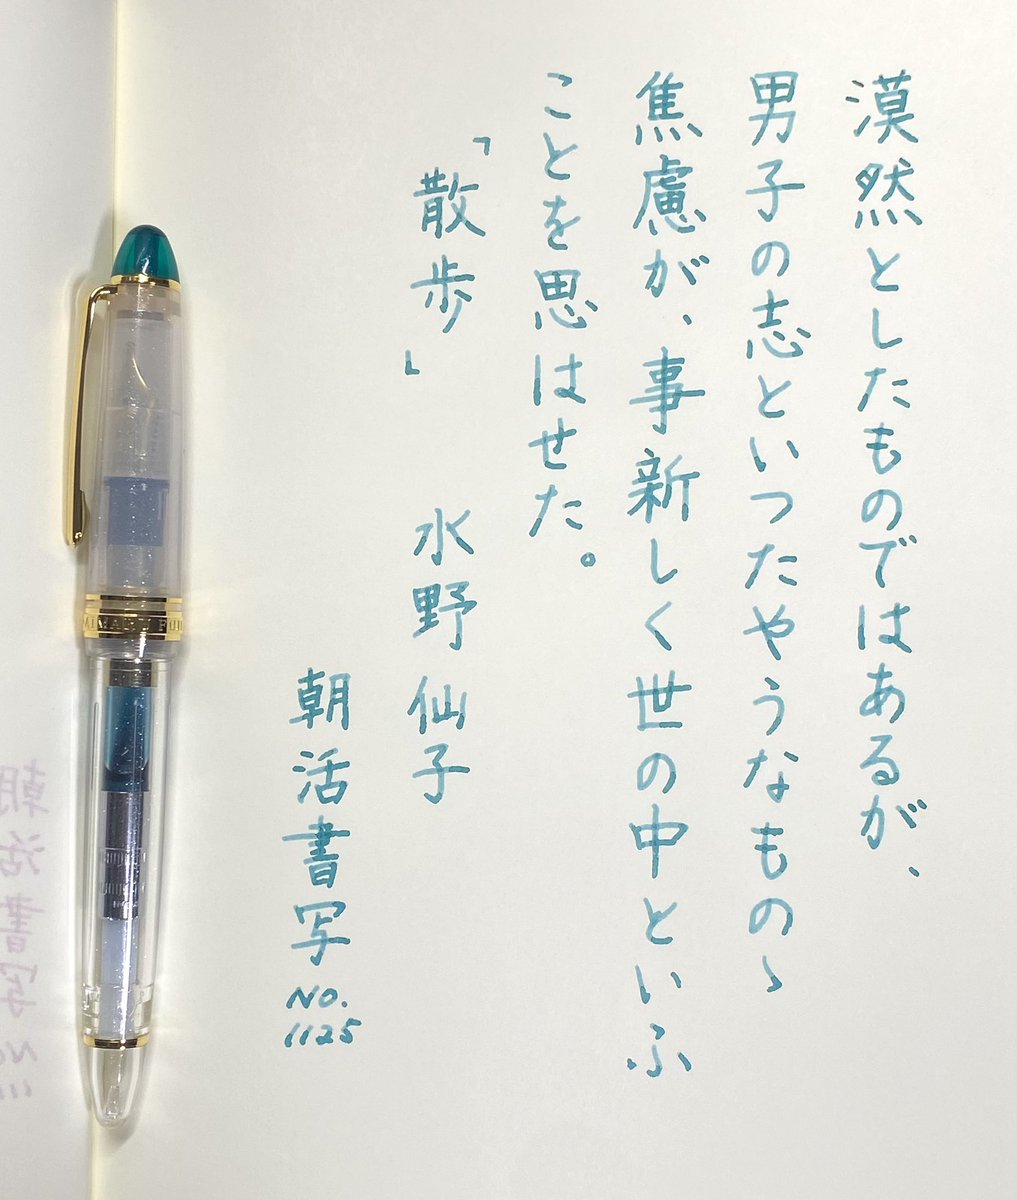 漠然としたものではあるが、
男子の志といつたやうなものゝ
焦慮が、事新しく世の中といふ
ことを思はせた。
「散歩」 水野仙子
朝活書写
No.
1125
朝活書写No